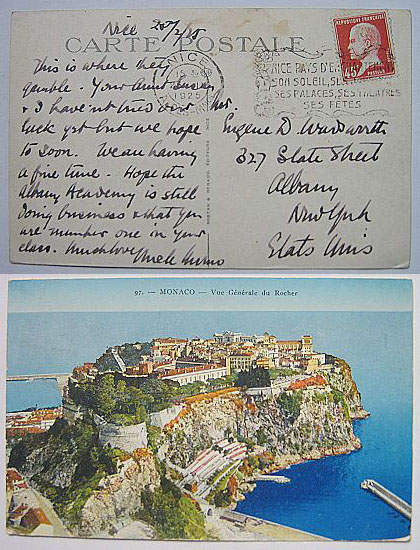 Nice 20/2/25
CARTE POSTALE
This is where they
gamble. Your Aunt Susan
& I haven't tried our
luck yet but we hope
to soon. We are having
a fine time. Hope the
Albany Academy is still
doing business & that you
are number one in your
class. Much love Uncle
NICE
1925
NICE PAYS D'E
SON SOLEIL, SE
SES PALACES, SES THEATRES
SES FÊTES
REPUBLIQUE FRANÇAISE
45
POSTES
Mr.
Eugene D. Wardwarth
327 State Street
Albany
New York
Etats Unis
97. — MONACO — Vue Générale du Rocher